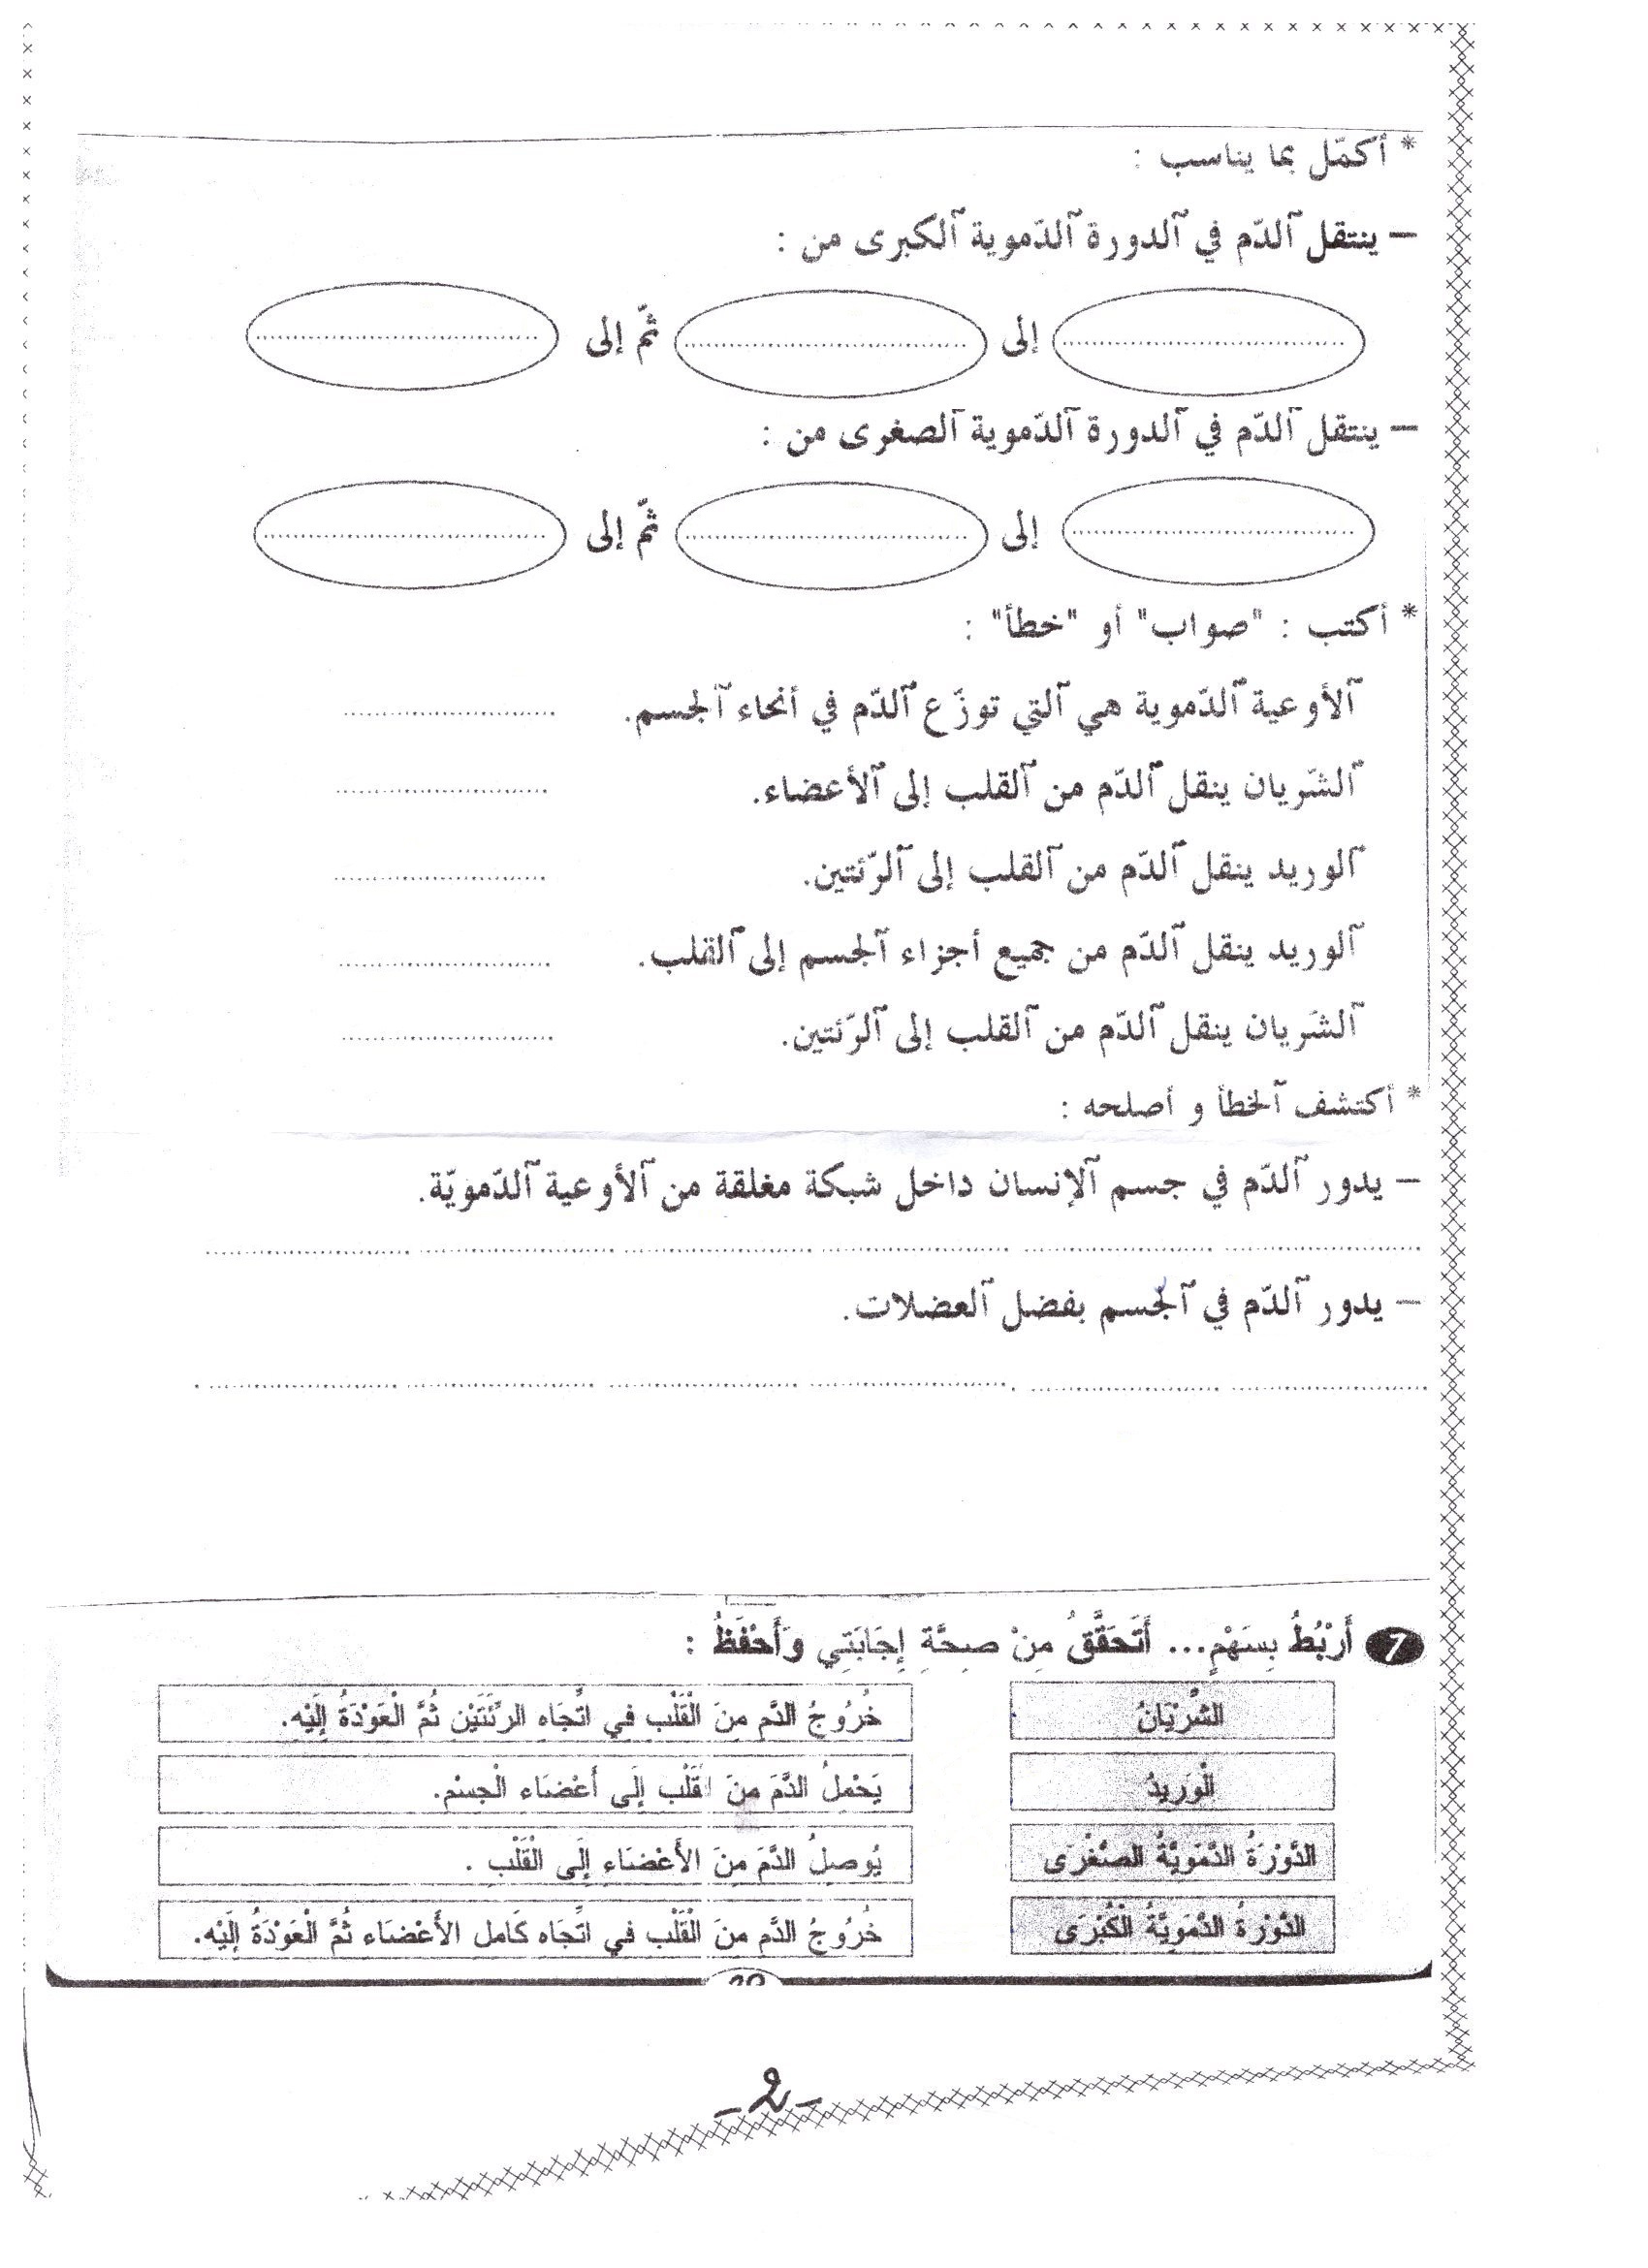 * أكمّل بما يناسب :
– ينتقل ٱلدّم في ٱلدورة ٱلدّموية ٱلكبرى من :
................ إلى ................ ثمّ إلى ................
– ينتقل ٱلدّم في ٱلدورة ٱلدّموية ٱلصغرى من :
................ إلى ................ ثمّ إلى ................
* أكتب : "صواب" أو "خطأ" :
ٱلأوعية ٱلدّموية هي ٱلتي توزّع ٱلدّم في أنحاء ٱلجسم. ................
ٱلشّريان ينقل ٱلدّم من ٱلقلب إلى ٱلأعضاء. ................
ٱلوريد ينقل ٱلدّم من ٱلقلب إلى ٱلرّئتين. ................
ٱلوريد ينقل ٱلدّم من جميع أجزاء ٱلجسم إلى ٱلقلب. ................
ٱلشّريان ينقل ٱلدّم من ٱلقلب إلى ٱلرّئتين. ................
* أكتشف ٱلخطأ و أصلحه :
– يدور ٱلدّم في جسم ٱلإنسان داخل شبكة مغلقة من ٱلأوعية ٱلدّمويّة.
................ ................ ................ ................ ................ ................
– يدور ٱلدّم في ٱلجسم بفضل ٱلعضلات.
................ ................ ................ ................ ................ ................
7 أَرْبُطُ بِسَهْمٍ... أَتَحَقَّقُ مِنْ صِحَّةِ إِجَابَتِي وَأَحْفَظُ :
الشِّرْيَانُ خُرُوجُ الدَّمِ مِنَ الْقَلْبِ فِي اتِّجَاهِ الرِّئَتَيْنِ ثُمَّ الْعَوْدَةُ إِلَيْهِ.
الْوَرِيدُ يَحْمِلُ الدَّمَ مِنَ الْقَلْبِ إِلَى أَعْضَاءِ الْجِسْمِ.
الدَّوْرَةُ الدَّمَوِيَّةُ الصُّغْرَى يُوصِلُ الدَّمَ مِنَ الأَعْضَاءِ إِلَى الْقَلْبِ .
الدَّوْرَةُ الدَّمَوِيَّةُ الْكُبْرَى خُرُوجُ الدَّمِ مِنَ الْقَلْبِ فِي اتِّجَاهِ كَامِلِ الأَعْضَاءِ ثُمَّ الْعَوْدَةُ إِلَيْهِ.
-2-